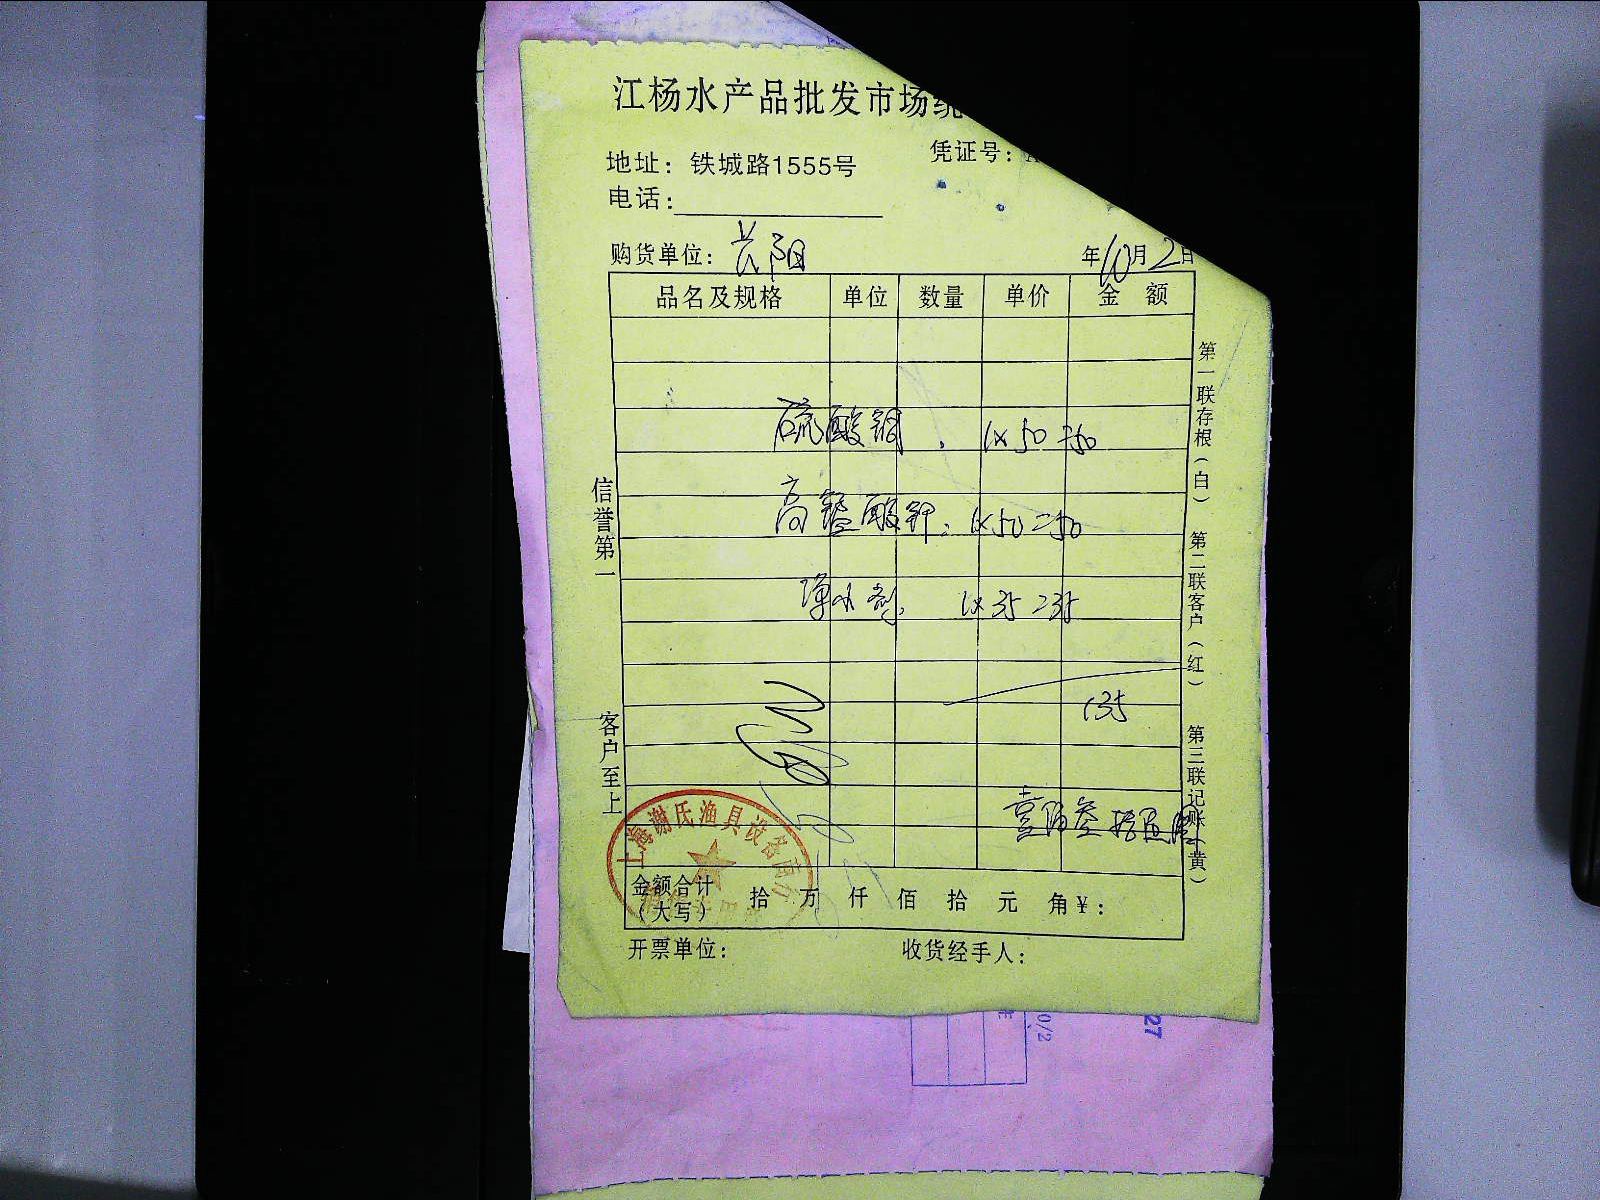 江杨水产品批发市场统
凭证号:
地址: 铁城路1555号
电话:
购货单位: 长阳 年10月2日
品名及规格 单位 数量 单价 金 额
硫酸铜, 1×50=50
高锰酸钾, 1×50=50
净水剂, 1×35=35
135
壹佰叁拾伍圆
金额合计(大写) 拾 万 仟 佰 拾 元 角¥:
开票单位: 收货经手人:
信誉第一 客户至上
第一联存根(白) 第二联客户(红) 第三联记账(黄)
上海谢氏渔具设备商行
0/2
27